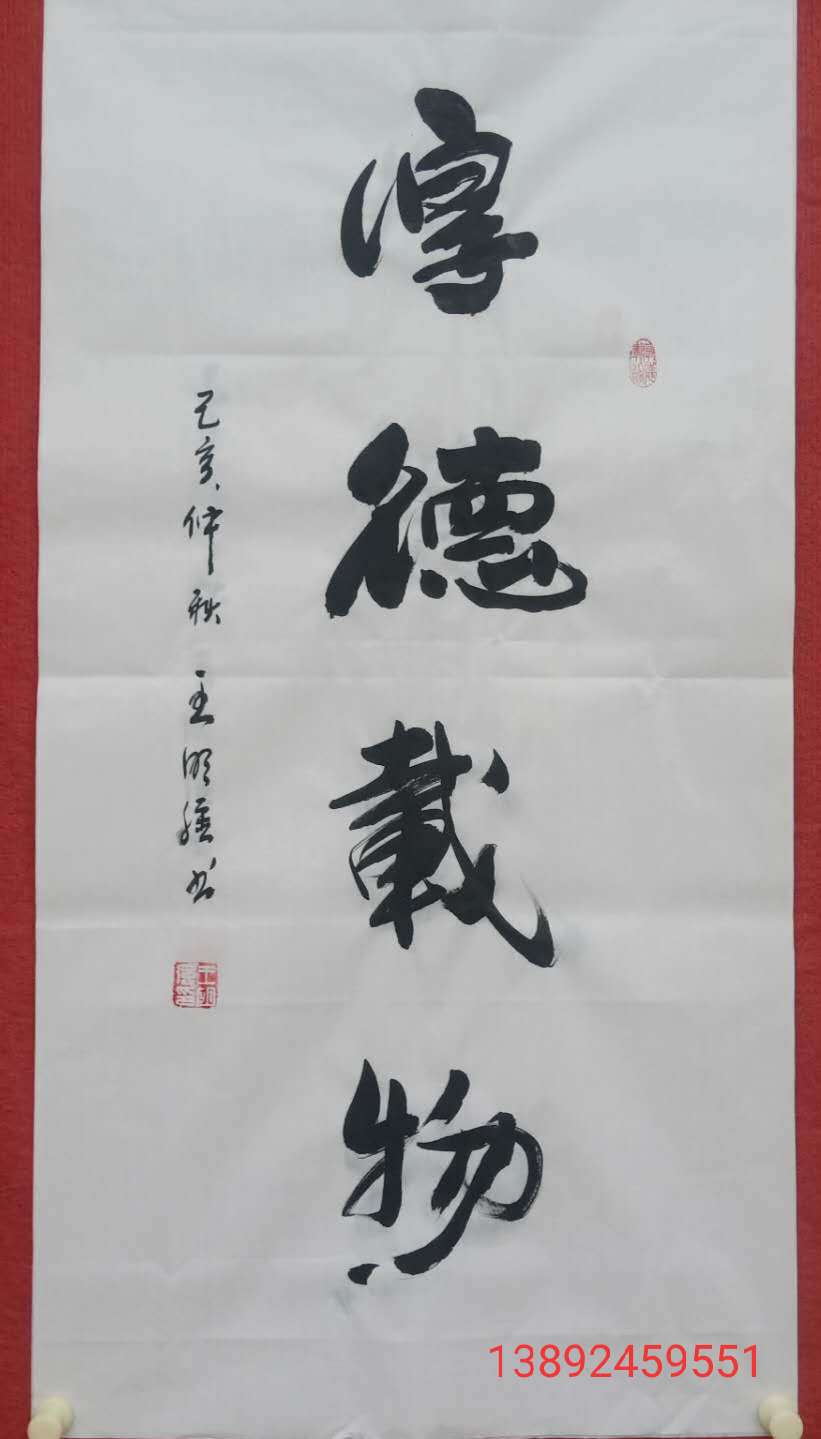 厚德載物
己亥仲秋 王明书
13892459551